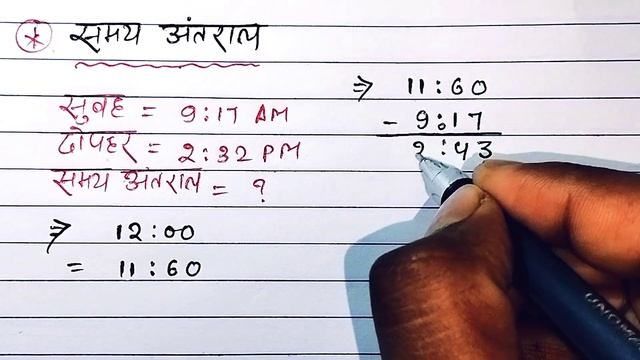 * समय अंतराल
सुबह = 9:17 AM
दोपहर = 2:32 PM
समय अंतराल = ?
⇒ 12:00
= 11:60
⇒ 11:60
- 9:17
2:43